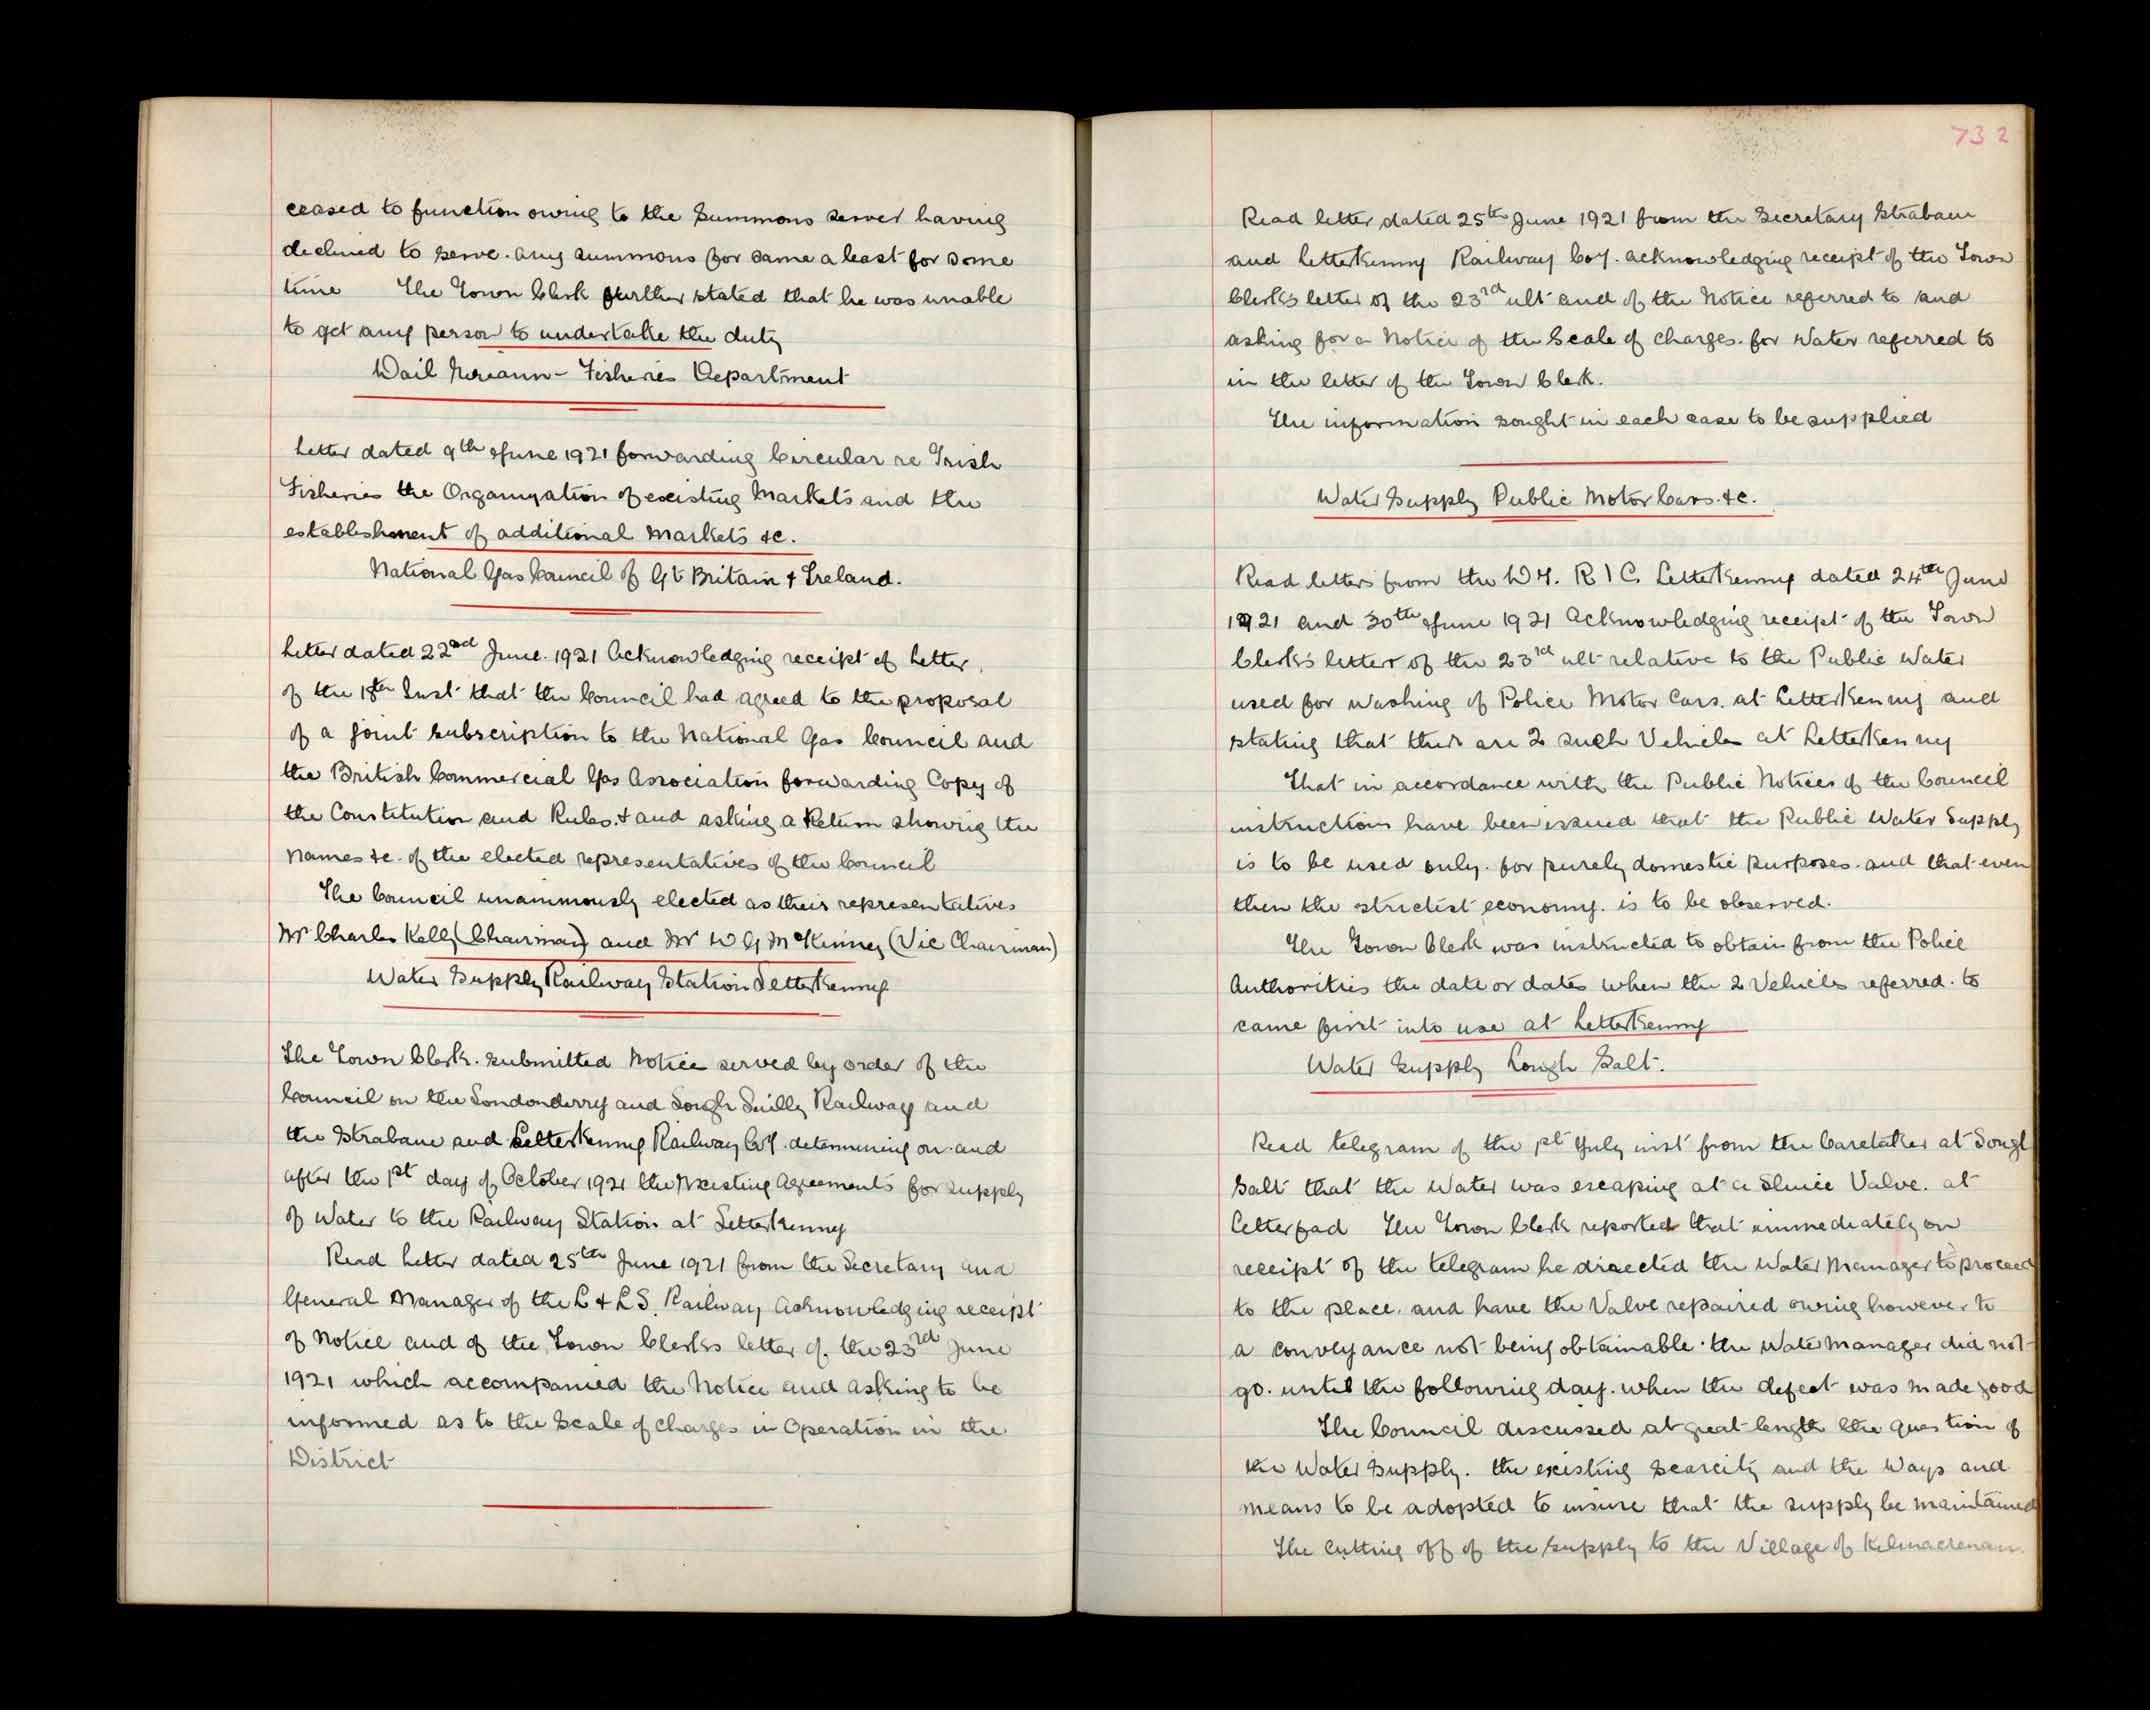 ceased to function owing to the Summons server having
declined to serve. any summons for same a least for some
time The Town Clerk further stated that he was unable
to get any person to undertake the duty
Dail Eireann - Fisheries Department
Letter dated 9th June 1921 forwarding Circular re Irish
Fisheries the Organization of existing Markets and the
establishment of additional Markets &c.
National Gas Council of Gt Britain & Ireland.
Letter dated 22nd June. 1921 Acknowledging receipt of Letter
of the 18th Inst that the Council had agreed to the proposal
of a joint subscription to the National Gas Council and
the British Commercial Gas Association forwarding Copy of
the Constitution and Rules. & and asking a Return showing the
names &c. of the elected representatives of the Council
The Council unanimously elected as their representatives
Mr Charles Kelly (Chairman) and Mr W G McKinney (Vic Chairman)
Water Supply Railway Station Letterkenny
The Town Clerk. submitted Notice served by order of the
Council on the Londonderry and Lough Swilly Railway and
the Strabane and Letterkenny Railway Coy. determining on and
after the 1st day of October 1921 the Existing Agreements for supply
of Water to the Railway Station at Letterkenny
Read Letter dated 25th June 1921 from the Secretary and
General Manager of the L & L S. Railway Acknowledging receipt
of Notice and of the Town Clerks letter of the 23rd June
1921 which accompanied the Notice and asking to be
informed as to the Scale of Charges in Operation in the
District
732
Read letter dated 25th June 1921 from the Secretary Strabane
and Letterkenny Railway Coy. acknowledging receipt of the Town
Clerks letter of the 23rd ult and of the Notice referred to and
asking for a Notice of the Scale of charges. for Water referred to
in the letter of the Town Clerk.
The information sought in each case to be supplied
Water Supply Public Motor Cars. &c.
Read letters from the D I. R I C. Letterkenny dated 24th June
1921 and 30th June 1921 Acknowledging receipt of the Town
Clerks letter of the 23rd ult relative to the Public Water
used for washing of Police Motor Cars. at Letterkenny and
stating that there are 2 such Vehicles at Letterkenny
That in accordance with the Public Notices of the Council
instructions have been issued that the Public Water Supply
is to be used only. for purely domestic purposes. and that even
then the strictest economy. is to be observed.
The Town Clerk was instructed to obtain from the Police
Authorities the date or dates when the 2 Vehicles referred. to
came first into use at Letterkenny
Water Supply Lough Salt.
Read telegram of the 1st July inst from the Caretaker at Lough
Salt that the Water was escaping at a Sluice Valve. at
Letterfad The Town Clerk reported that immediately on
receipt of the telegram he directed the Water Manager to proceed
to the place. and have the Valve repaired owing however to
a conveyance not being obtainable. the Water Manager did not
go. until the following day. when the defect was made good
The Council discussed at great length the question of
the Water Supply. the existing Scarcity and the Ways and
means to be adopted to insure that the supply be maintained
The Cutting off of the supply to the Village of Kilmacrenan